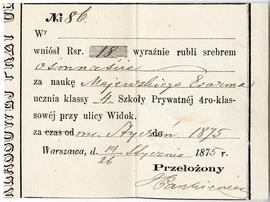 № 86.
W
wniósł Rsr. 18 wyraźnie rubli srebrem
osmnaście
za naukę Majewskiego Erazma
ucznia klassy 4. Szkoły Prywatnéj 4ro-klas-
sowéj przy ulicy Widok.
za czas od 1875
Warszawa, d. 14/26 Stycznia 1875 r.
Przełożony
J Pankiewicz